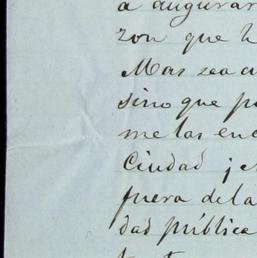 a augurar
zon que h
Mas sea a
sino que p
me las en
Ciudad ¡
fuera de la
dad pública